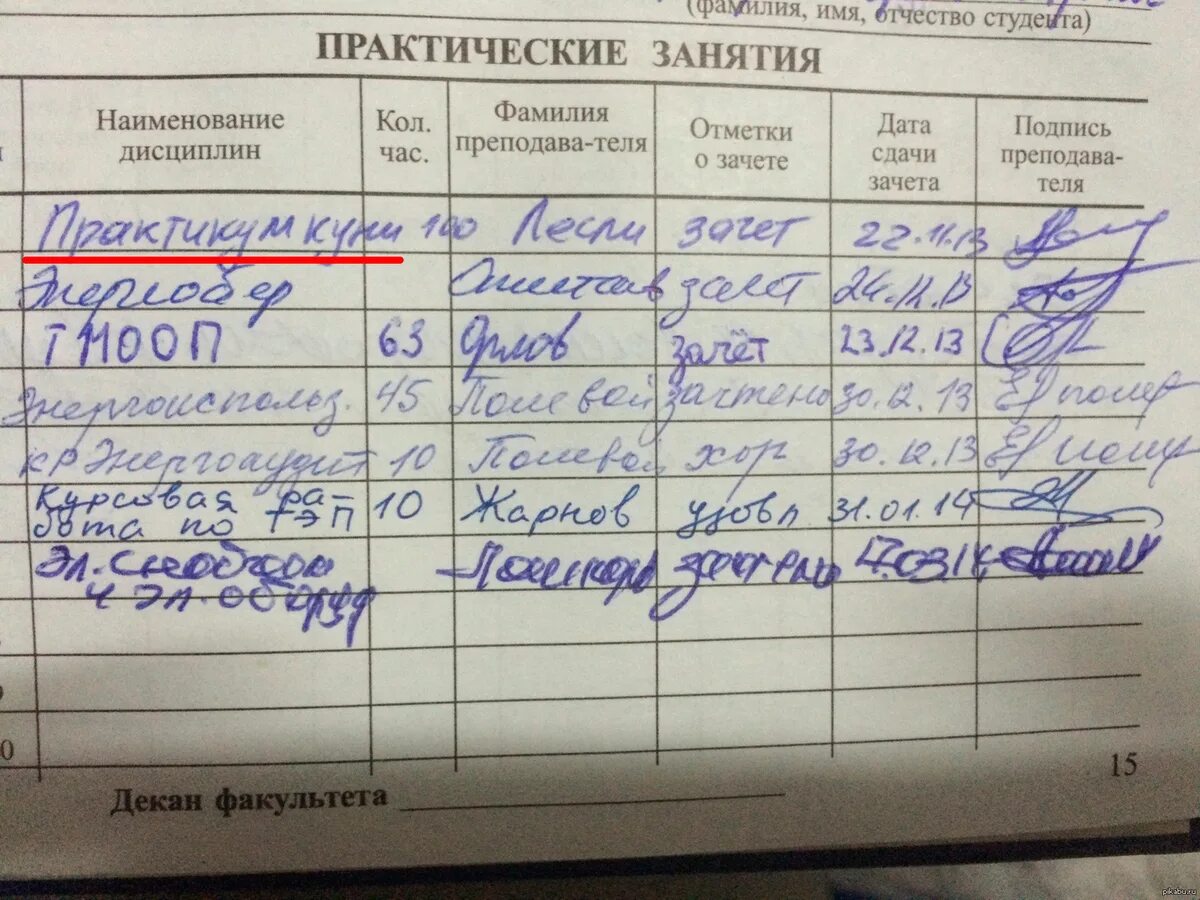 (фамилия, имя, отчество студента)
ПРАКТИЧЕСКИЕ ЗАНЯТИЯ
Наименование дисциплин Кол. час. Фамилия преподава-теля Отметки о зачете Дата сдачи зачета Подпись преподава-теля
Практикум куни 100 Лесли зачет 22.11.13
Энергосбер зачет 24.12.13
ТМООП 63 Орлов зачёт 23.12.13
Энергоиспольз. 45 Полевой зачтено 30.12.13
КР Энергоаудит 10 Полевой хор 30.12.13
Курсовая ра-
бота по ТЭП 10 Жарнов удовл 31.01.14
Эл. зачтено 17.03.14
и эл. оборуд
0
15
Декан факультета
pikabu.ru